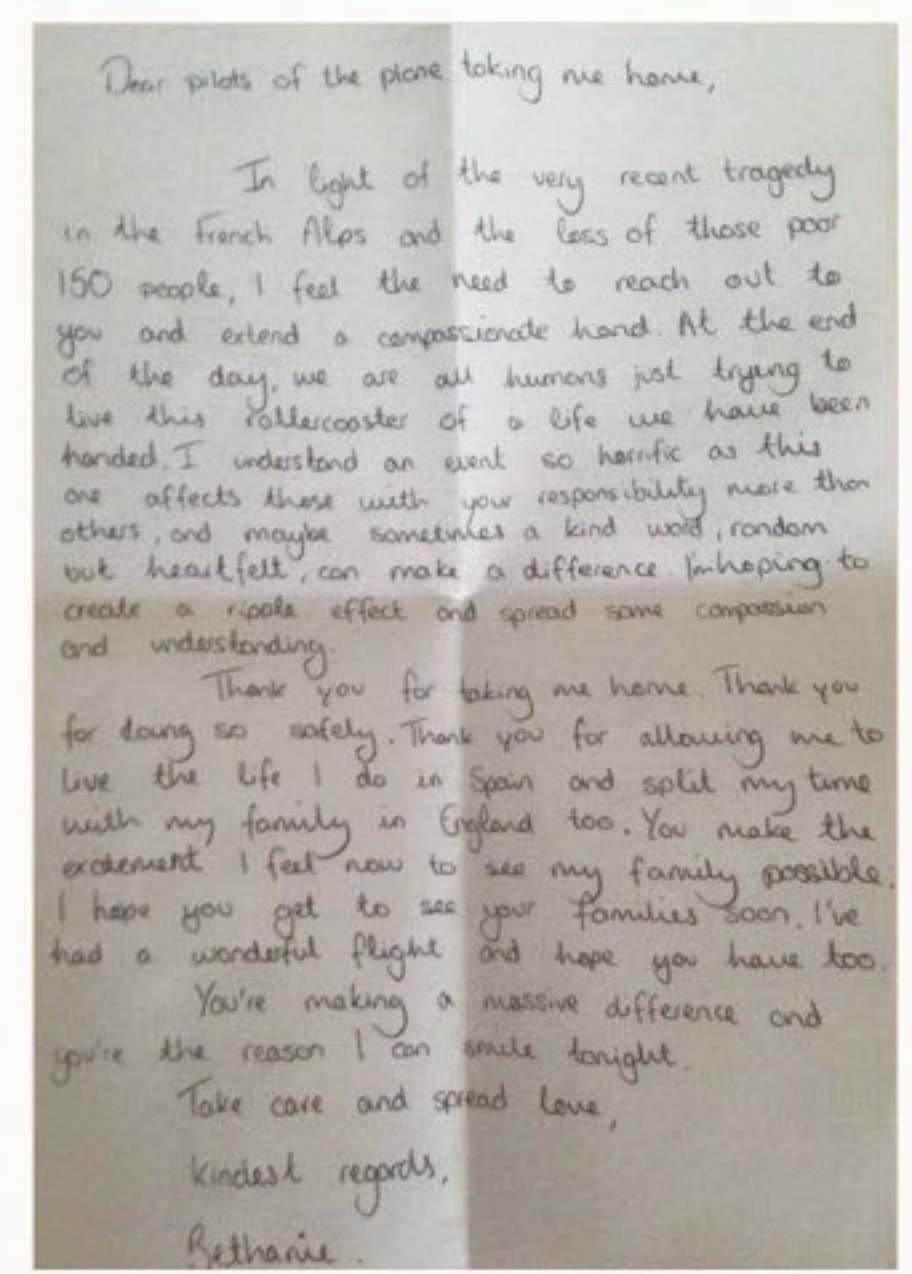 Dear pilots of the plane taking me home,
In light of the very recent tragedy
in the French Alps and the loss of those poor
150 people, I feel the need to reach out to
you and extend a compassionate hand. At the end
of the day, we are all humans just trying to
live this rollercoaster of a life we have been
handed. I understand an event so horrific as this
one affects those with your responsibility more than
others, and maybe sometimes a kind word, random
but heartfelt, can make a difference. I'm hoping to
create a ripple effect and spread some compassion
and understanding.
Thank you for taking me home. Thank you
for doing so safely. Thank you for allowing me to
live the life I do in Spain and split my time
with my family in England too. You make the
excitement I feel now to see my family possible.
I hope you get to see your families soon. I've
had a wonderful flight and hope you have too.
You're making a massive difference and
you're the reason I can smile tonight.
Take care and spread love,
kindest regards,
Bethanie.